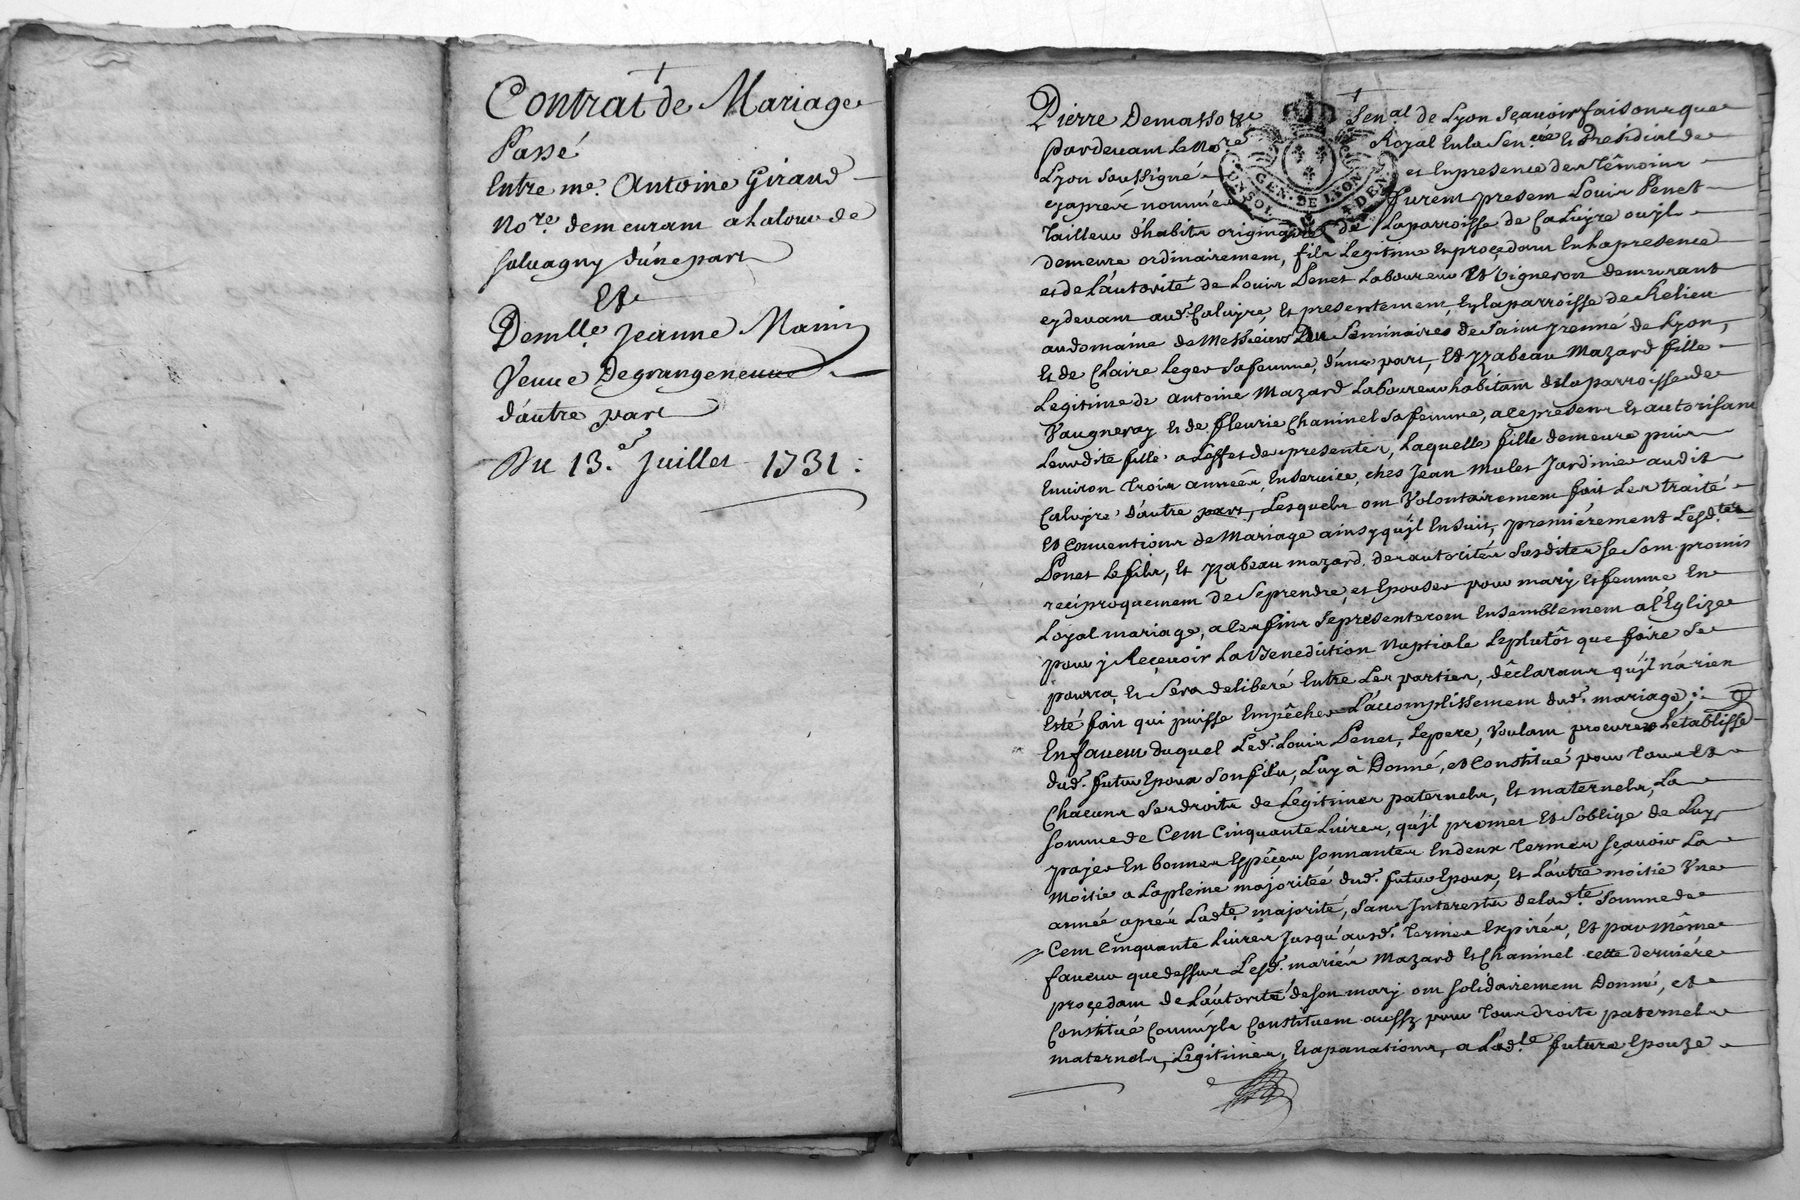 Contrat de Mariage
Passé
Entre me. Antoine Giraud
No.re demeurant a Lalour de
salvagny d'une part
Et
Demlle. Jeanne Manin
Veuve Degrangeneuve
d'autre part
Du 13.e Juillet 1731.
Pierre Demasso Sen.al de Lyon Sçavoir faisons que
pardevant Le No.re Royal En la Sen.cée Et Presidial de
Lyon soussigné et En presence des Témoins
cy aprés nommés furent presens Louis Penet
Tailleur d'habits originaire de Laparroisse de Caluyre ou jl
demeure ordinairement, fils Legitime En procedant En la presence
et de L'autorité de Louis Penet Laboureur Et Vigneron demeurant
cy devant aud. Caluyre, Et presentement En laparroisse de Relieu
au domaine de Messieurs Du Seminaire de Saint jrenné de Lyon,
Et de Claire Leger Sa femme, d'une part, Et Yzabeau Mazard fille
Legitime de antoine Mazard Laboureur habitant de la parroisse de
Vaugneray Et de fleurie Chaninel sa femme, a ce presens Et autorisant
Leurdite fille a L'effet des presentes, Laquelle fille demeure puis
Environ Trois années, En service, chés Jean Mulet Jardinier audit
Caluyre d'autre part, Lesquels ont Volontairement fait Les traité
Et Conventions de Mariage ainsy qu'jl Ensuit, premiérement Lesd.tes
Penet Le fils, Et Yzabeau mazard des autorités susdites se sont promis
reciproquement de Se prendre, et Epouser pour mary Et femme En
Loyal mariage, a ces fins Se presenteront Ensemblement a l'Eglize
pour y Reçevoir La Benediction Nuptiale Le plutôt que faire Se
pourra, Et Sera deliberé Entre Les parties, déclarans qu'jl n'a rien
Esté fait qui puisse Empêcher L'accomplissement dud. mariage;
En faveur duquel Led. Louis Penet, Le pere, Voulant procurer L'établisse
dud. futur Epoux Son fils, Luy à Donné, et Constitué pour Tous Et
Chacuns Ses droits de Legitimes paternels, Et maternels, La
Somme de Cent Cinquante Livres, qu'jl promet Et S'oblige de Luy
payer En bonnes Espéces Sonnantes En deux Termes Sçavoir La
Moitié a La pleine majoritée dud. futur Epoux, Et L'autre moitié Une
année aprés Lad.te majorité, Sans Interests de Lad.te Somme de
Cent Cinquante Livres Jusqu'ausd. Termes Expirés, Et par même
faveur que dessus Lesd. mariés Mazard Et Chaninel cette derniére
procedant de L'autorité de Son mary ont solidairement Donné, et
Constitué Comm'jls Constituent aussy pour Tous droits paternels
maternels, Legitimes, Et apanations, a Lad.te future Epouze
GEN. DE LYON